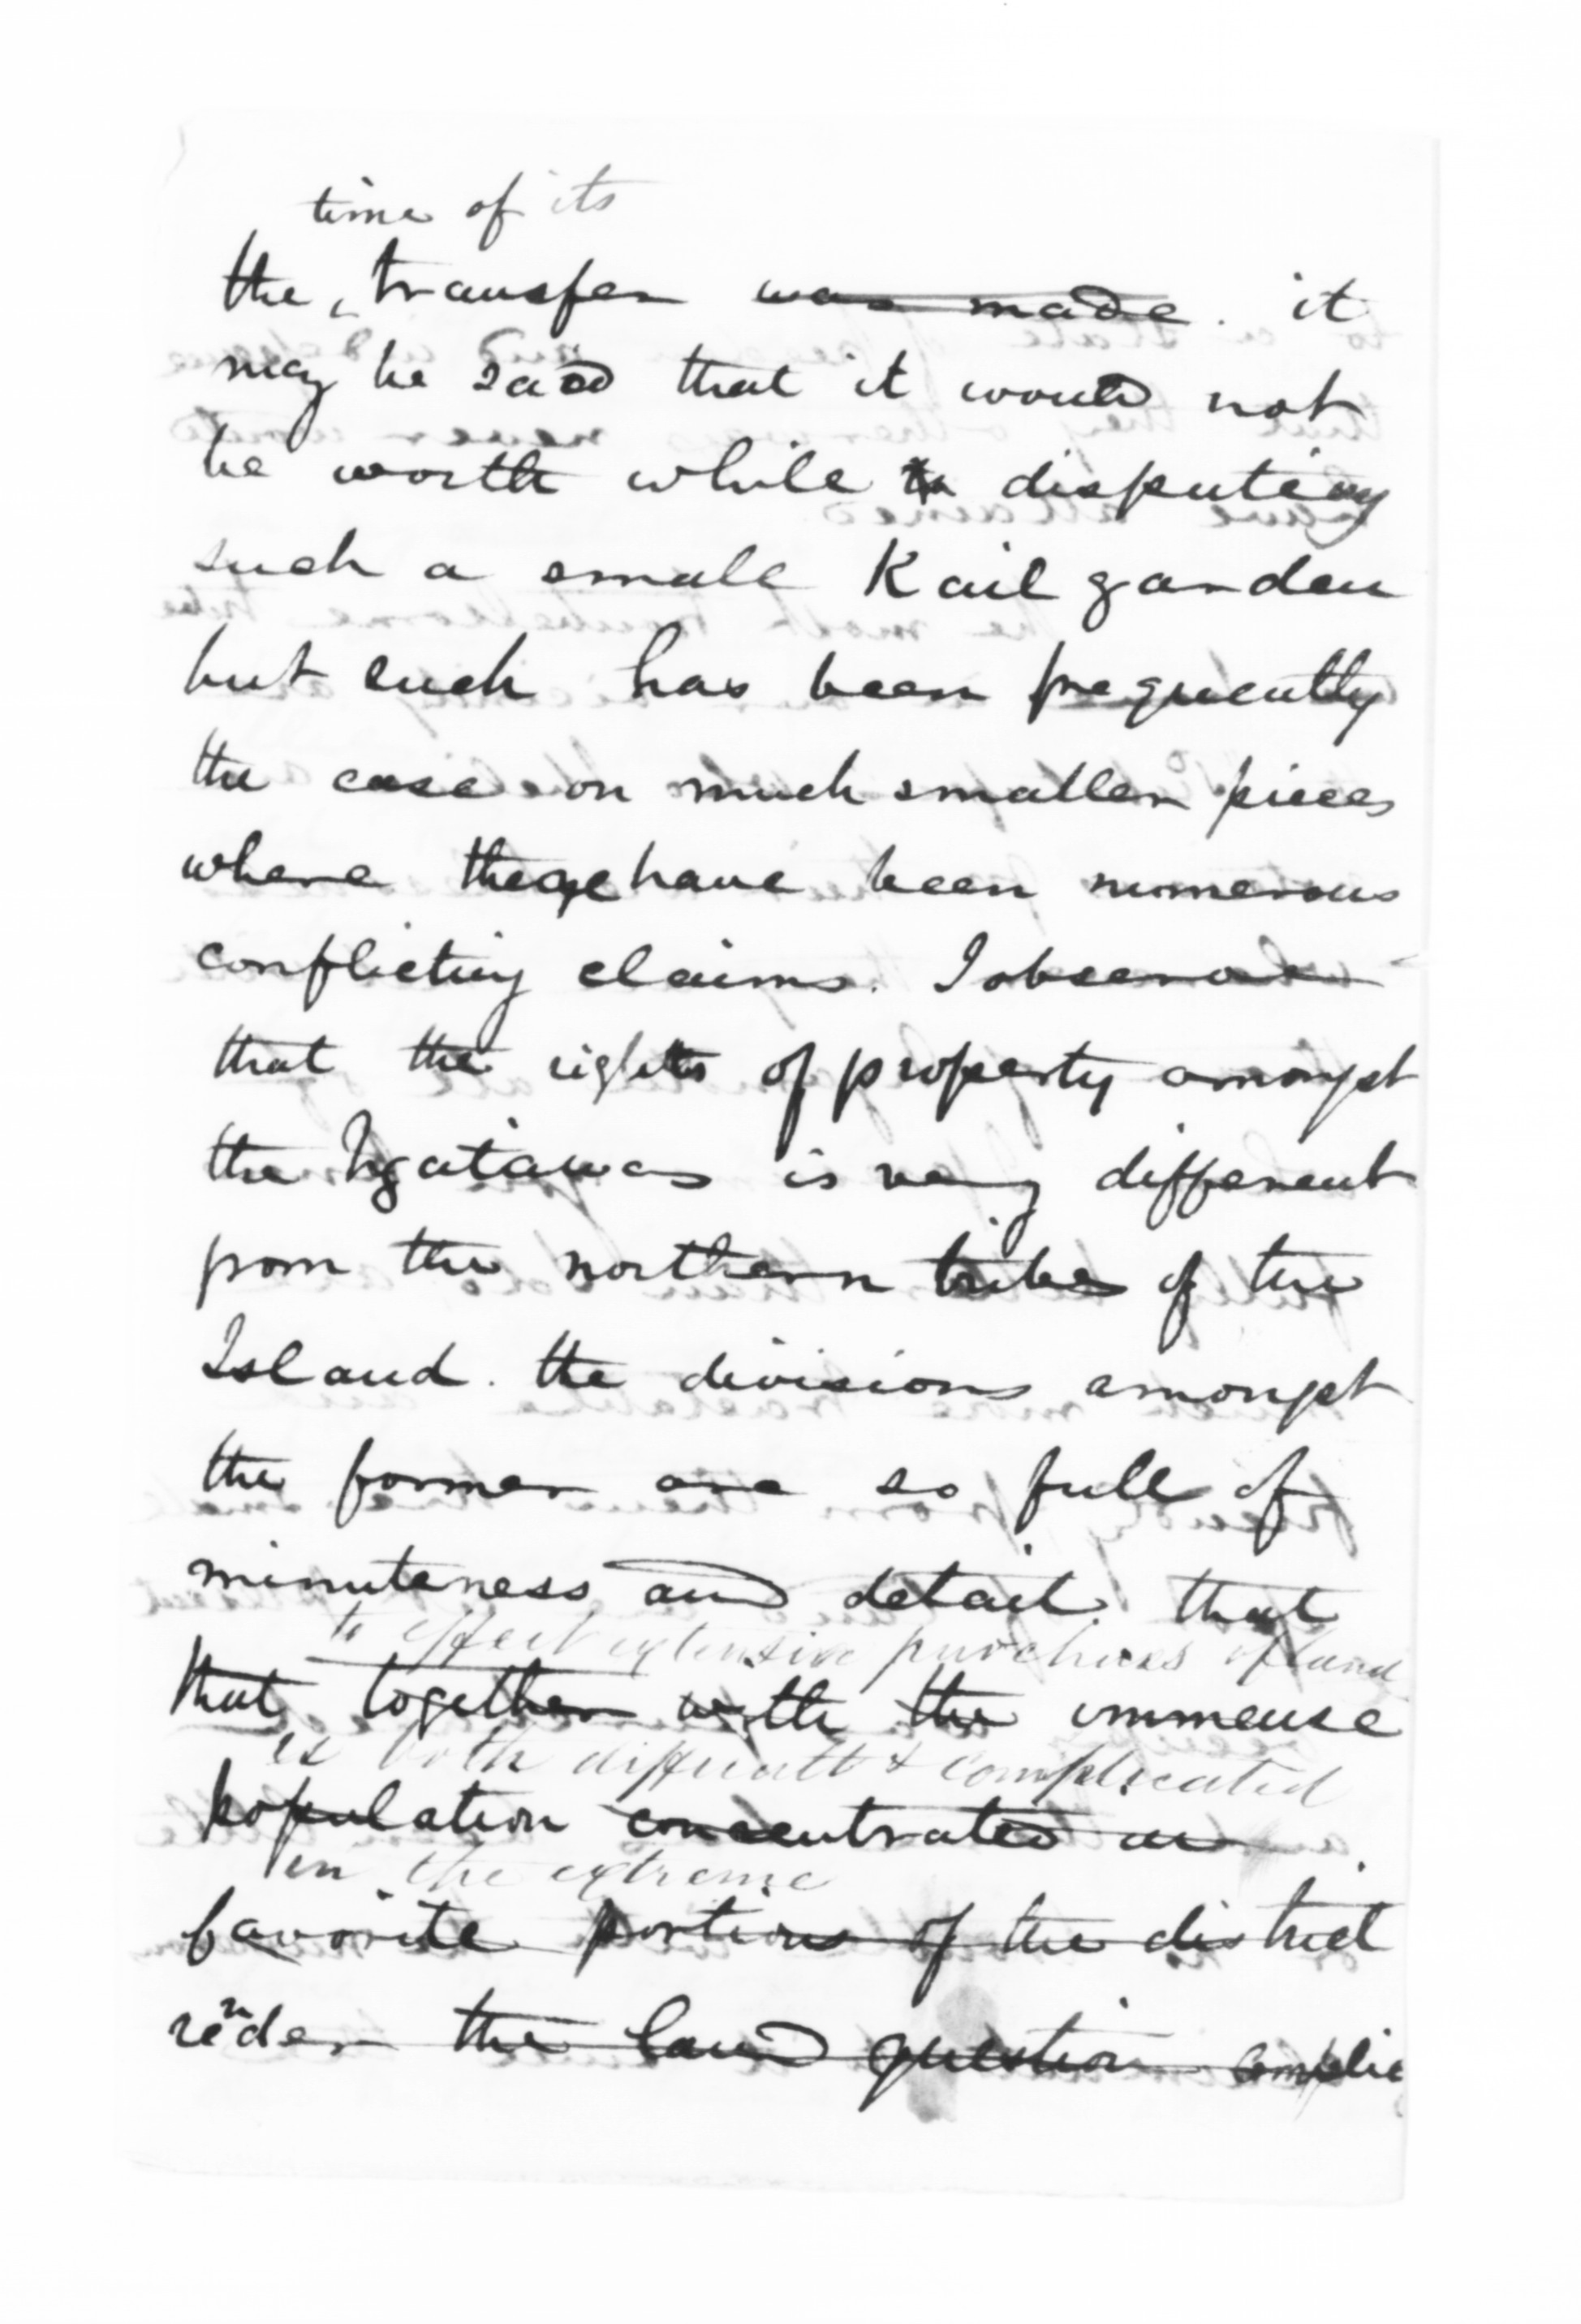 time of its
the transfer was made. it
may be said that it would not
be worth while to disputing
such a small Kail garden
but such has been frequently
the case on much smaller pieces
where there have been numerous
conflicting claims. I observe
that the rights of property amongst
the Ngatiawas is very different
from the northern tribes of the
Island. the divisions amongst
the former are so full of
minuteness and detail. that
to effect extensive purchases of land
that together with the immense
is both difficult & complicated
population concentrated in
in the extreme
favorite portions of the district
render the land question complic